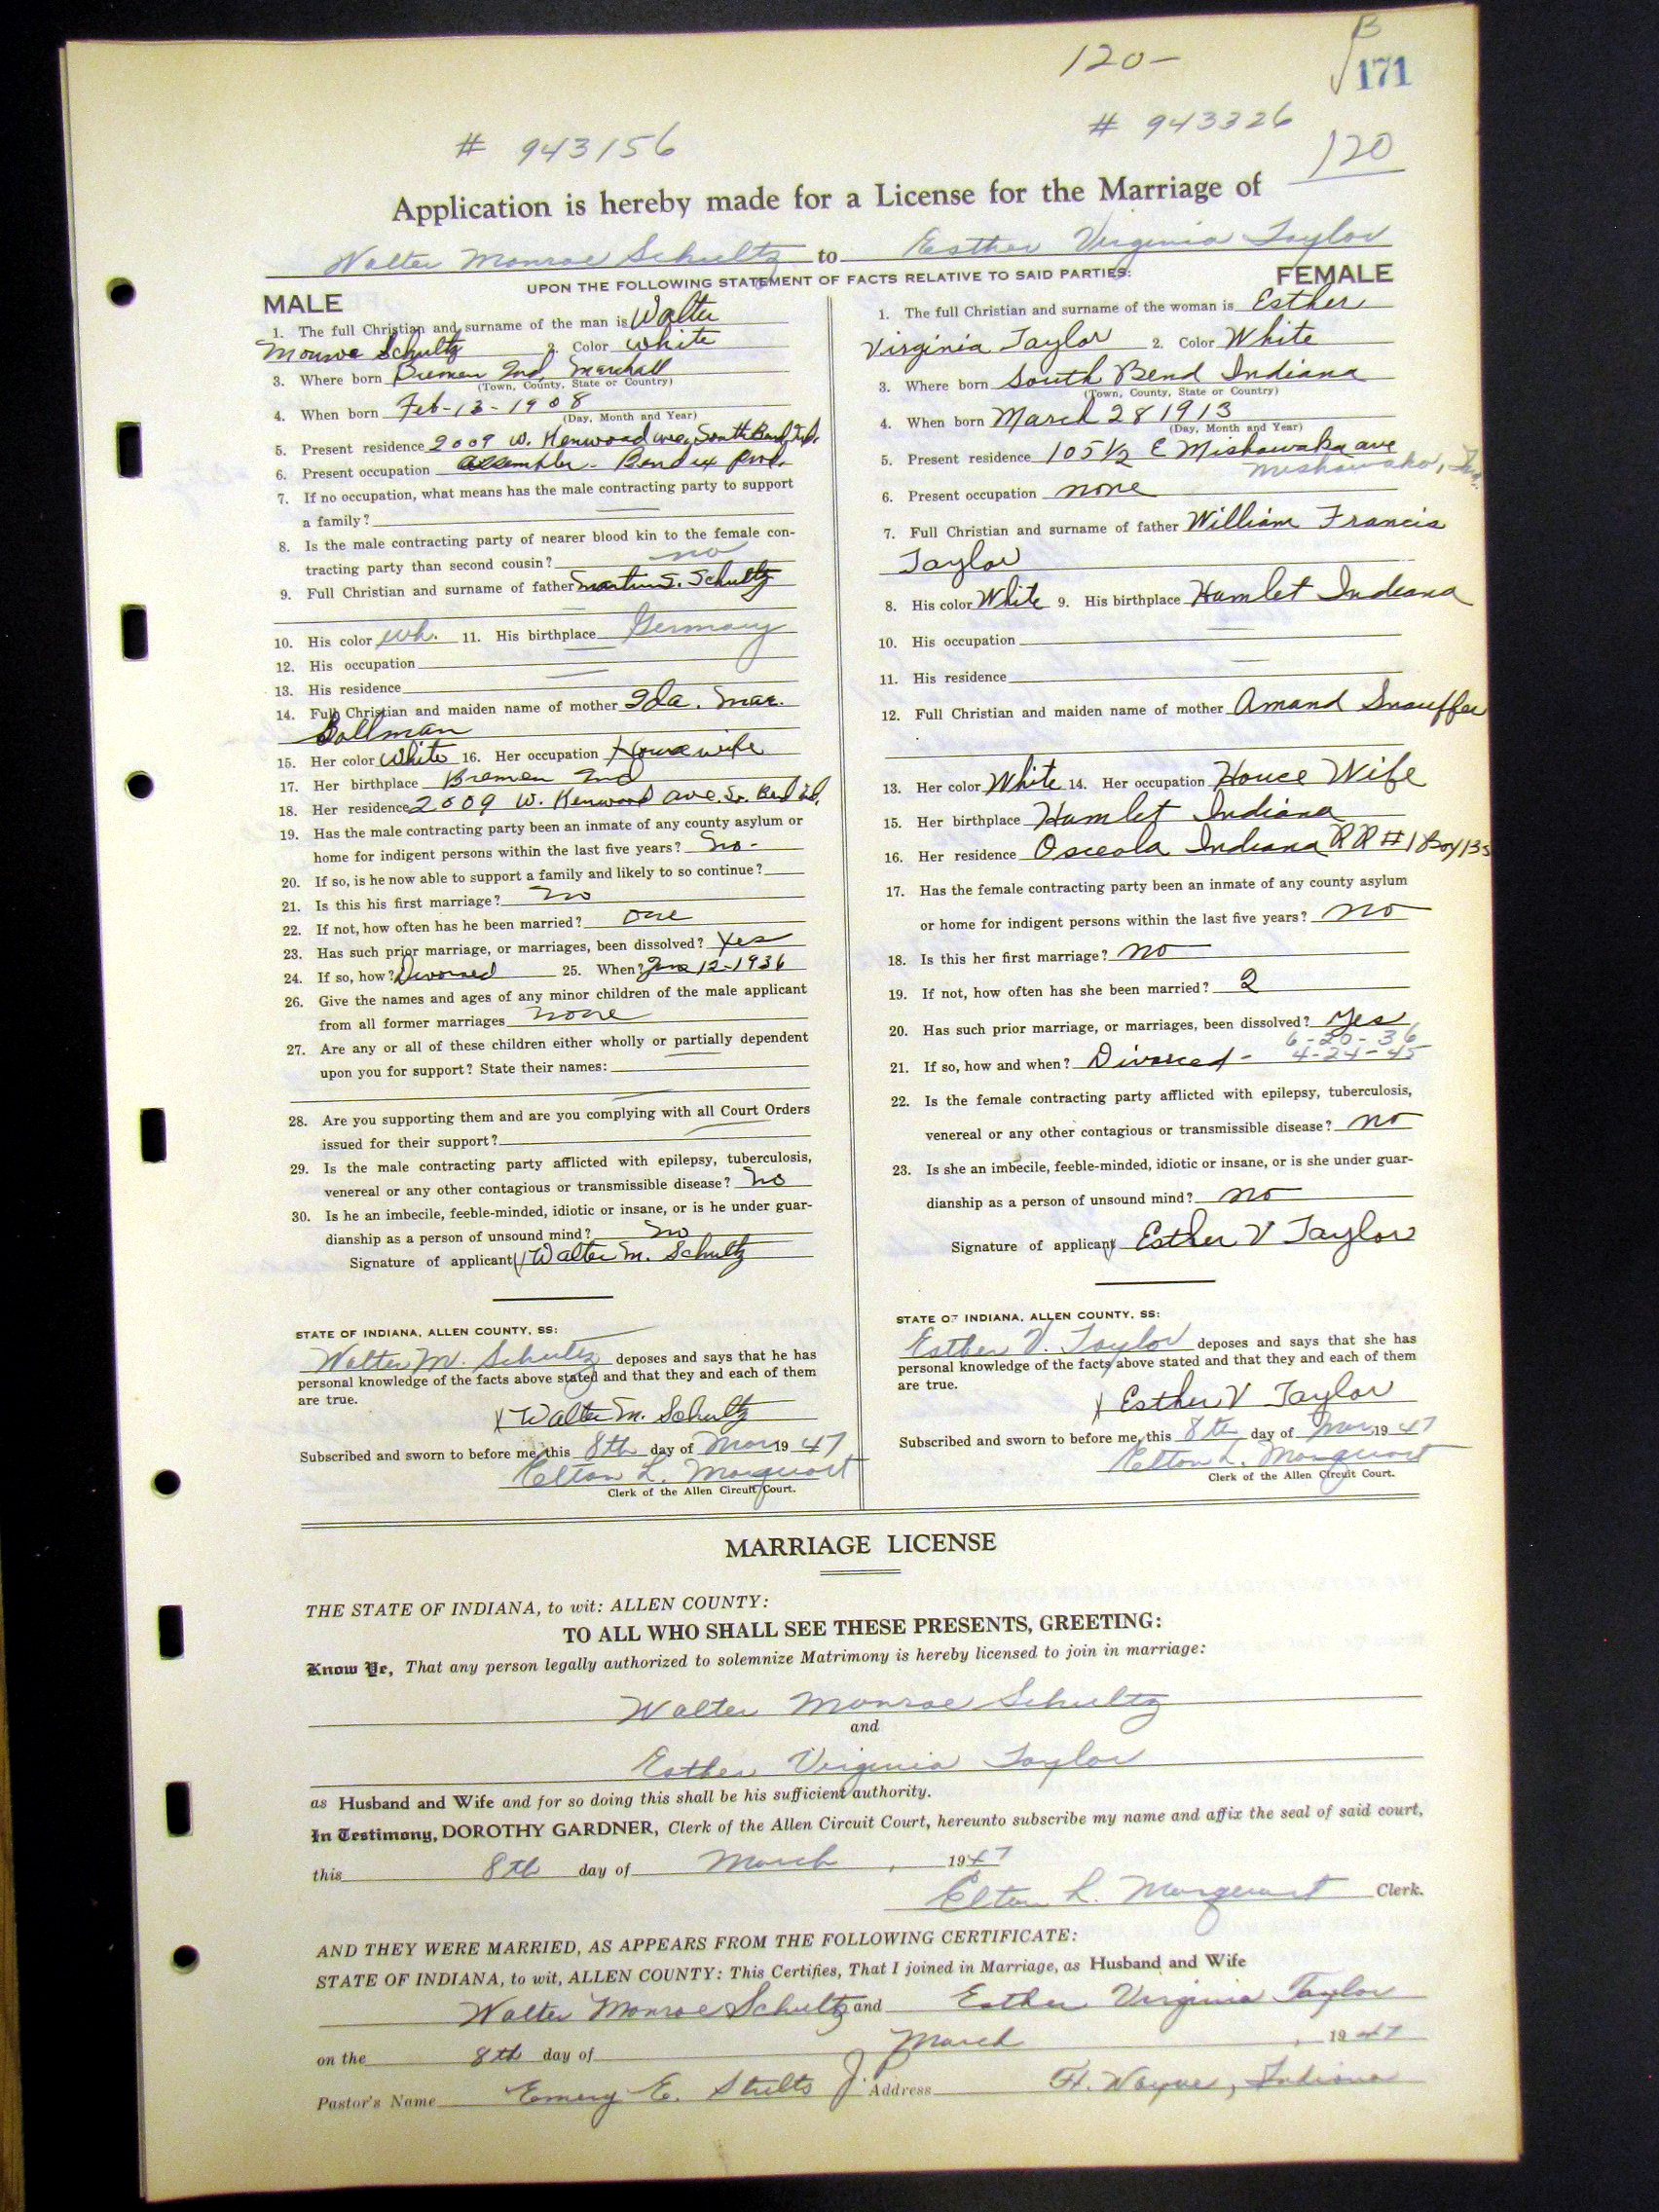 120-
B
171
# 943156
# 943326
120
Application is hereby made for a License for the Marriage of
Walter Monroe Schultz to Esther Virginia Taylor
UPON THE FOLLOWING STATEMENT OF FACTS RELATIVE TO SAID PARTIES:
MALE
1. The full Christian and surname of the man is Walter
Monroe Schultz 2. Color White
3. Where born Bremen Ind. Marshall
(Town, County, State or Country)
4. When born Feb-13-1908
(Day, Month and Year)
5. Present residence 2009 W. Kenwood ave, South Bend, Ind.
6. Present occupation Assembler - Bendix Prod.
7. If no occupation, what means has the male contracting party to support
a family?
8. Is the male contracting party of nearer blood kin to the female con-
tracting party than second cousin? no
9. Full Christian and surname of father Martin S. Schultz
10. His color Wh. 11. His birthplace Germany
12. His occupation
13. His residence
14. Full Christian and maiden name of mother Ida. Mae.
Bollman
15. Her color White 16. Her occupation Housewife
17. Her birthplace Bremen Ind
18. Her residence 2009 W. Kenwood ave. So. Bend Ind.
19. Has the male contracting party been an inmate of any county asylum or
home for indigent persons within the last five years? No-
20. If so, is he now able to support a family and likely to so continue?
21. Is this his first marriage? No
22. If not, how often has he been married? one
23. Has such prior marriage, or marriages, been dissolved? Yes
24. If so, how? Divorced 25. When? 12-1936
26. Give the names and ages of any minor children of the male applicant
from all former marriages none
27. Are any or all of these children either wholly or partially dependent
upon you for support? State their names:
28. Are you supporting them and are you complying with all Court Orders
issued for their support?
29. Is the male contracting party afflicted with epilepsy, tuberculosis,
venereal or any other contagious or transmissible disease? No
30. Is he an imbecile, feeble-minded, idiotic or insane, or is he under guar-
dianship as a person of unsound mind? No
Signature of applicant Walter M. Schultz
STATE OF INDIANA, ALLEN COUNTY, SS:
Walter M. Schultz deposes and says that he has
personal knowledge of the facts above stated and that they and each of them
are true.
X Walter M. Schultz
Subscribed and sworn to before me, this 8th day of Mar 19 47
Elton L. Marquart
Clerk of the Allen Circuit Court.
FEMALE
1. The full Christian and surname of the woman is Esther
Virginia Taylor 2. Color White
3. Where born South Bend Indiana
(Town, County, State or Country)
4. When born March 28 1913
(Day, Month and Year)
5. Present residence 105½ E Mishawaka ave
Mishawaka, Ind.
6. Present occupation none
7. Full Christian and surname of father William Francis
Taylor
8. His color White 9. His birthplace Hamlet Indiana
10. His occupation
11. His residence
12. Full Christian and maiden name of mother Amand Snouffer
13. Her color White 14. Her occupation House Wife
15. Her birthplace Hamlet Indiana
16. Her residence Osceola Indiana RR #1 Box 135
17. Has the female contracting party been an inmate of any county asylum
or home for indigent persons within the last five years? no
18. Is this her first marriage? no
19. If not, how often has she been married? 2
20. Has such prior marriage, or marriages, been dissolved? Yes
6-20-36
21. If so, how and when? Divorced - 4-24-45
22. Is the female contracting party afflicted with epilepsy, tuberculosis,
venereal or any other contagious or transmissible disease? no
23. Is she an imbecile, feeble-minded, idiotic or insane, or is she under guar-
dianship as a person of unsound mind? no
Signature of applicant Esther V Taylor
STATE OF INDIANA, ALLEN COUNTY, SS:
Esther V. Taylor deposes and says that she has
personal knowledge of the facts above stated and that they and each of them
are true.
X Esther V Taylor
Subscribed and sworn to before me, this 8th day of Mar 19 47
Elton L. Marquart
Clerk of the Allen Circuit Court.
MARRIAGE LICENSE
THE STATE OF INDIANA, to wit: ALLEN COUNTY:
TO ALL WHO SHALL SEE THESE PRESENTS, GREETING:
Know Ye, That any person legally authorized to solemnize Matrimony is hereby licensed to join in marriage:
Walter Monroe Schultz
and
Esther Virginia Taylor
as Husband and Wife and for so doing this shall be his sufficient authority.
In Testimony, DOROTHY GARDNER, Clerk of the Allen Circuit Court, hereunto subscribe my name and affix the seal of said court,
this 8th day of March, 1947
Elton L. Marquart Clerk.
AND THEY WERE MARRIED, AS APPEARS FROM THE FOLLOWING CERTIFICATE:
STATE OF INDIANA, to wit, ALLEN COUNTY: This Certifies, That I joined in Marriage, as Husband and Wife
Walter Monroe Schultz and Esther Virginia Taylor
on the 8th day of March, 1947
Pastor's Name Emery E. Stults J.P. Address Ft. Wayne, Indiana